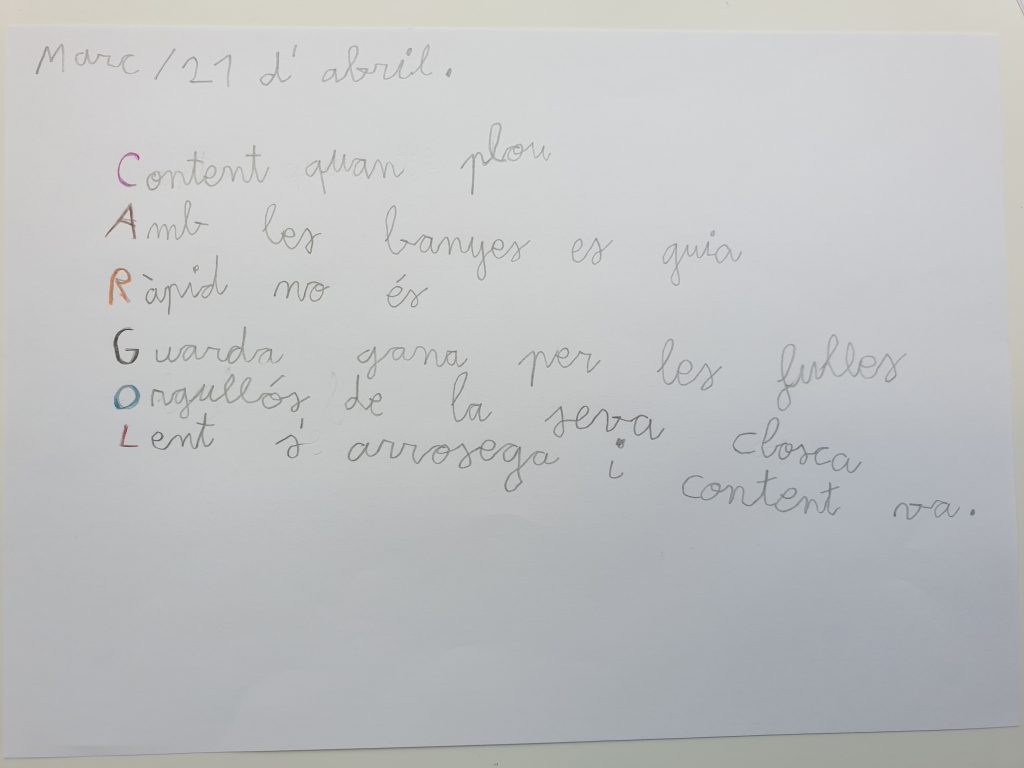 Marc / 21 d' abril.
Content quan plou
Amb les banyes es guia
Ràpid no és
Guarda gana per les fulles
Orgullós de la seva closca
Lent s' arrosega i content va.